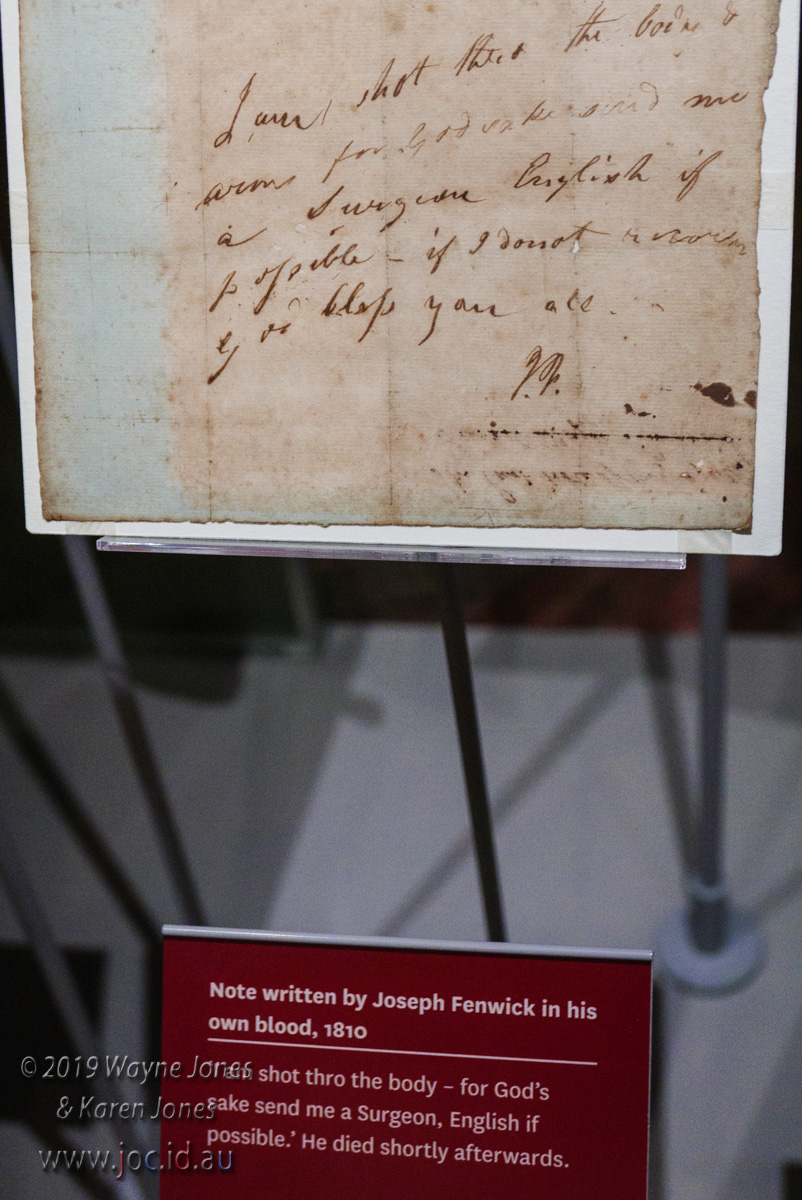 I am shot thro the body &
arms for Gods sake send me
a Surgeon English if
possible – if I donot recover
God bless you all.
J.F.
Note written by Joseph Fenwick in his
own blood, 1810
‘I am shot thro the body – for God’s
sake send me a Surgeon, English if
possible.’ He died shortly afterwards.
© 2019 Wayne Jones
& Karen Jones
www.joc.id.au